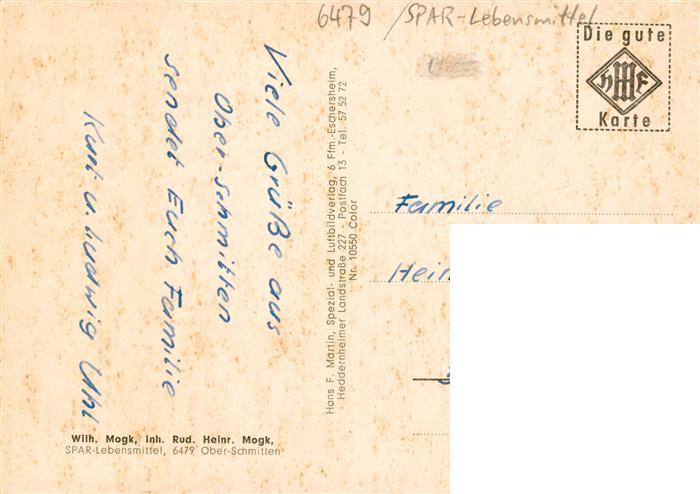 6479 /SPAR-Lebensmittel
Die gute
HMF
Karte
Viele Grüße aus
Ober-schmitten
sendet Euch Familie
Karl u. Ludwig Uhl
Hans F. Martin, Spezial- und Luftbildverlag, 6 Ffm.-Eschersheim,
Heddernheimer Landstraße 227 - Postfach 13 - Tel. 57 52 72
Nr. 10550 Color
Familie
Hein
Wilh. Mogk, Inh. Rud. Heinr. Mogk,
SPAR-Lebensmittel, 6479 Ober-Schmitten